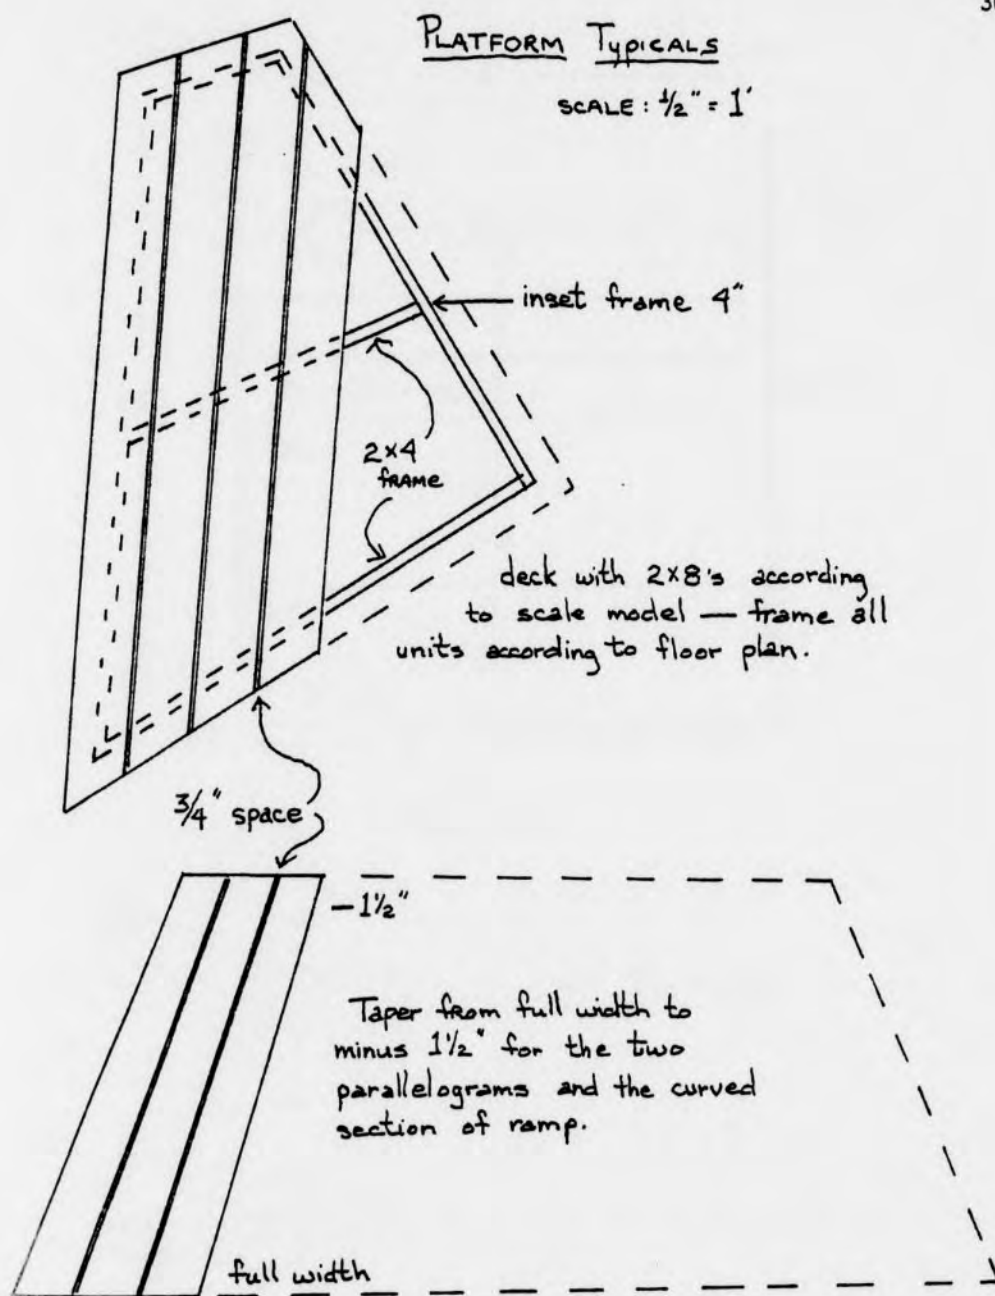 PLATFORM TYPICALS
SCALE: 1/2" = 1'
inset frame 4"
2×4
FRAME
deck with 2×8's according
to scale model — frame all
units according to floor plan.
3/4" space
— 1 1/2"
Taper from full width to
minus 1 1/2" for the two
parallelograms and the curved
section of ramp.
full width